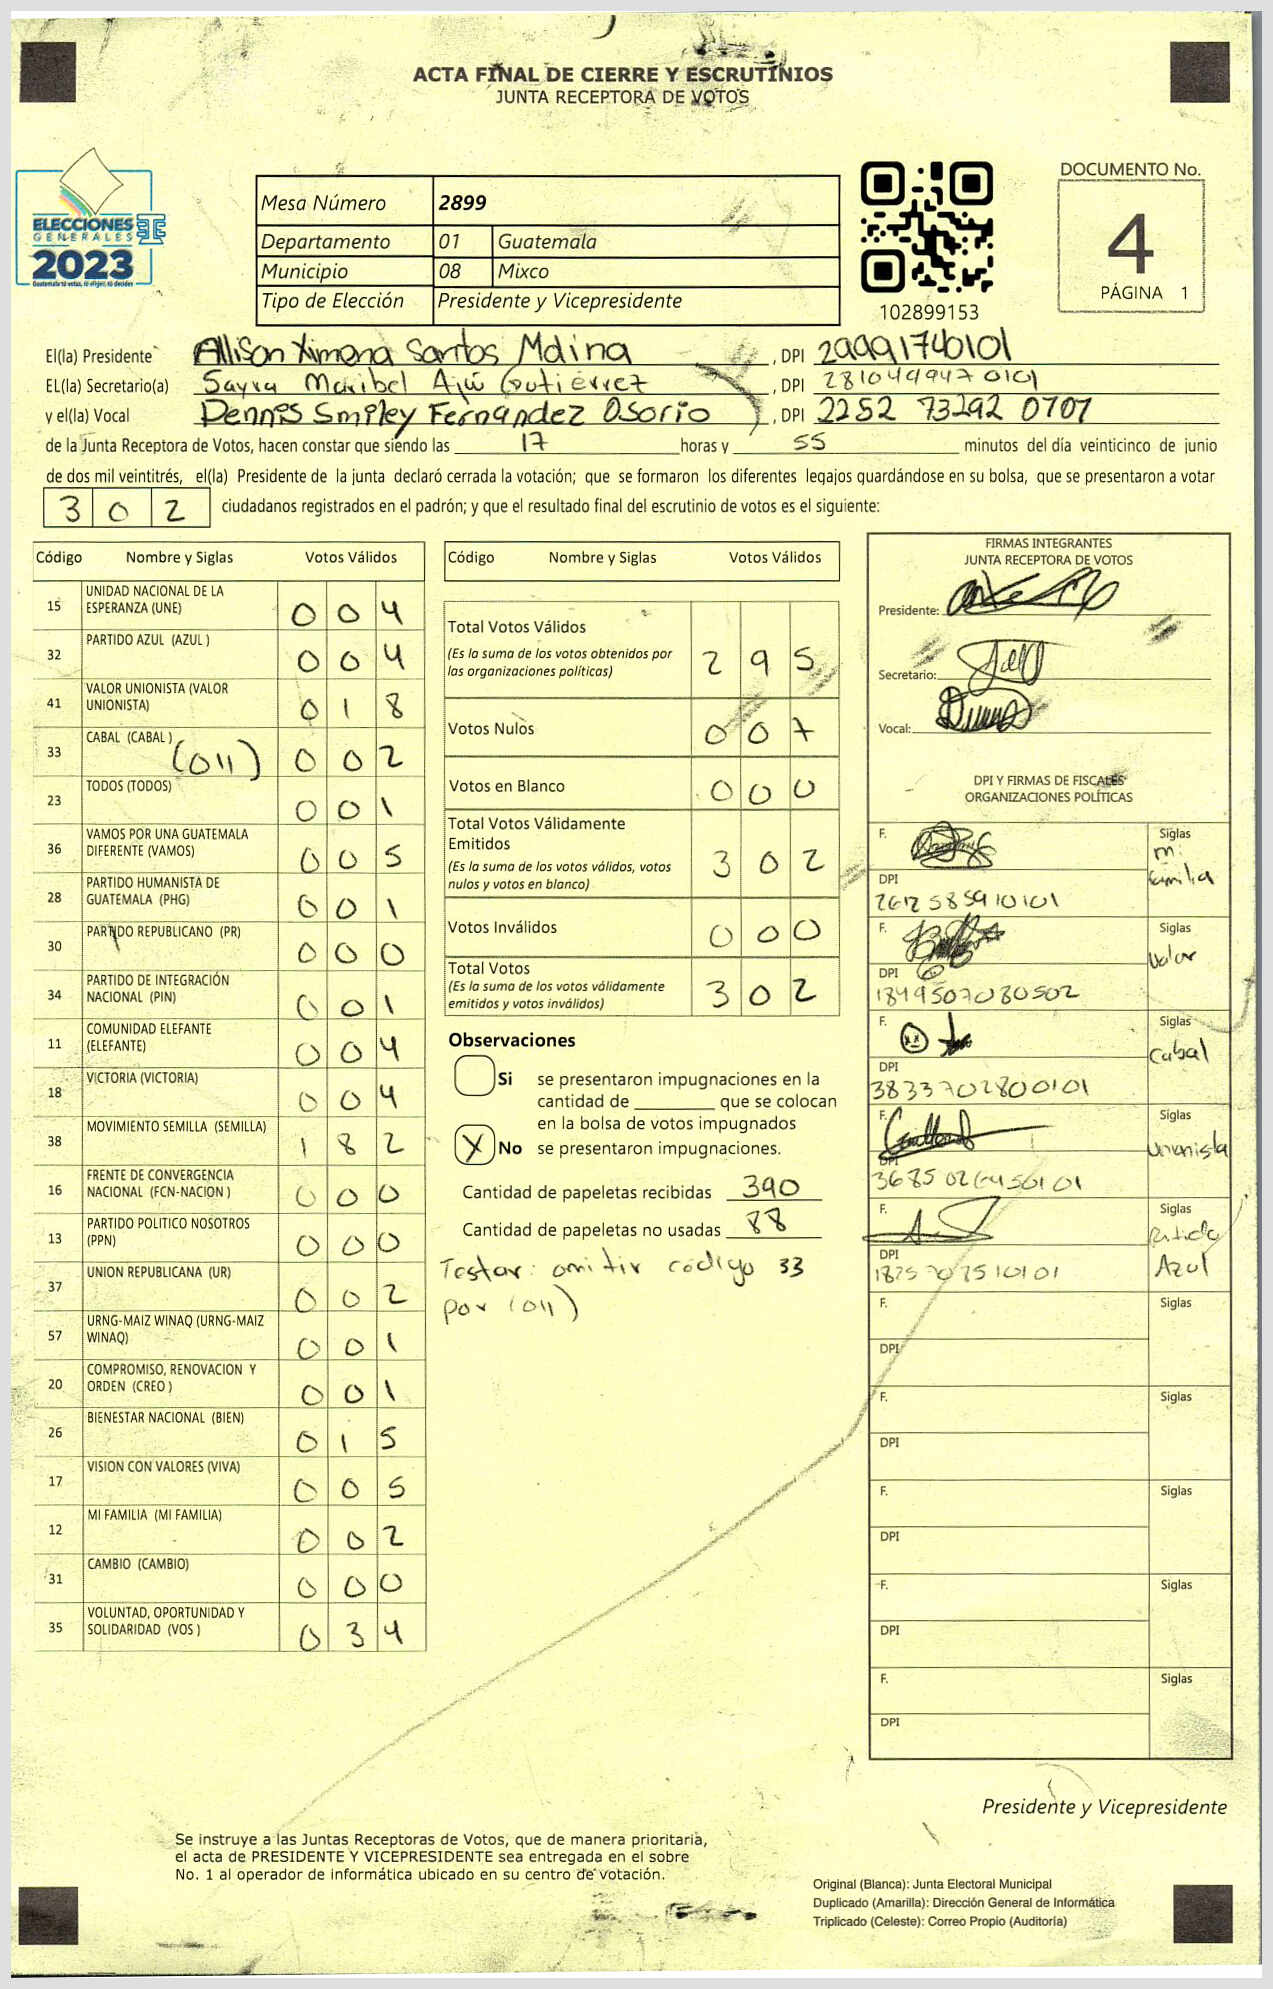 ACTA FINAL DE CIERRE Y ESCRUTINIOS
JUNTA RECEPTORA DE VOTOS
ELECCIONES
GENERALES
2023
Guatemala tú votas, tú eliges, tú decides
Mesa Número 2899
Departamento 01 Guatemala
Municipio 08 Mixco
Tipo de Elección Presidente y Vicepresidente
102899153
DOCUMENTO No.
4
PÁGINA 1
El(la) Presidente Allison Ximena Santos Mdina , DPI 29991740101
EL(la) Secretario(a) Sayra Maribel Ajú Gutiérrez , DPI 2810499470101
y el(la) Vocal Dennis Smiley Fernández Osorio , DPI 2252 73292 0707
de la Junta Receptora de Votos, hacen constar que siendo las 17 horas y 55 minutos del día veinticinco de junio
de dos mil veintitrés, el(la) Presidente de la junta declaró cerrada la votación; que se formaron los diferentes legajos guardándose en su bolsa, que se presentaron a votar
302 ciudadanos registrados en el padrón; y que el resultado final del escrutinio de votos es el siguiente:
Código Nombre y Siglas Votos Válidos
15 UNIDAD NACIONAL DE LA ESPERANZA (UNE) 004
32 PARTIDO AZUL (AZUL ) 004
41 VALOR UNIONISTA (VALOR UNIONISTA) 018
33 CABAL (CABAL ) (011) 002
23 TODOS (TODOS) 001
36 VAMOS POR UNA GUATEMALA DIFERENTE (VAMOS) 005
28 PARTIDO HUMANISTA DE GUATEMALA (PHG) 001
30 PARTIDO REPUBLICANO (PR) 000
34 PARTIDO DE INTEGRACIÓN NACIONAL (PIN) 001
11 COMUNIDAD ELEFANTE (ELEFANTE) 004
18 VICTORIA (VICTORIA) 004
38 MOVIMIENTO SEMILLA (SEMILLA) 182
16 FRENTE DE CONVERGENCIA NACIONAL (FCN-NACION ) 000
13 PARTIDO POLITICO NOSOTROS (PPN) 000
37 UNION REPUBLICANA (UR) 002
57 URNG-MAIZ WINAQ (URNG-MAIZ WINAQ) 001
20 COMPROMISO, RENOVACION Y ORDEN (CREO ) 001
26 BIENESTAR NACIONAL (BIEN) 015
17 VISION CON VALORES (VIVA) 005
12 MI FAMILIA (MI FAMILIA) 002
31 CAMBIO (CAMBIO) 000
35 VOLUNTAD, OPORTUNIDAD Y SOLIDARIDAD (VOS ) 034
Código Nombre y Siglas Votos Válidos
Total Votos Válidos 295
(Es la suma de los votos obtenidos por
las organizaciones políticas)
Votos Nulos 007
Votos en Blanco 000
Total Votos Válidamente
Emitidos 302
(Es la suma de los votos válidos, votos
nulos y votos en blanco)
Votos Inválidos 000
Total Votos 302
(Es la suma de los votos válidamente
emitidos y votos inválidos)
Observaciones
Si se presentaron impugnaciones en la
cantidad de ________ que se colocan
en la bolsa de votos impugnados
X No se presentaron impugnaciones.
Cantidad de papeletas recibidas 390
Cantidad de papeletas no usadas 88
Testar: omitir código 33
por (011)
FIRMAS INTEGRANTES
JUNTA RECEPTORA DE VOTOS
Presidente:
Secretario:
Vocal:
DPI Y FIRMAS DE FISCALES
ORGANIZACIONES POLÍTICAS
F. Siglas mi familia
DPI 2612585910101
F. Siglas Valor
DPI 1849507080502
F. Siglas Cabal
DPI 3833702800101
F. Siglas Unionista
DPI
F. Siglas Partido Azul
DPI
F. Siglas
DPI
F. Siglas
DPI
F. Siglas
DPI
F. Siglas
DPI
F. Siglas
DPI
Presidente y Vicepresidente
Se instruye a las Juntas Receptoras de Votos, que de manera prioritaria,
el acta de PRESIDENTE Y VICEPRESIDENTE sea entregada en el sobre
No. 1 al operador de informática ubicado en su centro de votación.
Original (Blanca): Junta Electoral Municipal
Duplicado (Amarilla): Dirección General de Informática
Triplicado (Celeste): Correo Propio (Auditoría)